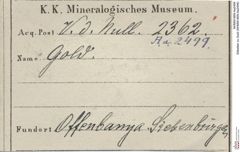 K. K. Mineralogisches Museum.
Acq. Post V. d. Null. 2362.
A.a. 2499.
Name Gold.
Fundort Offenbanya Siebenbürgen